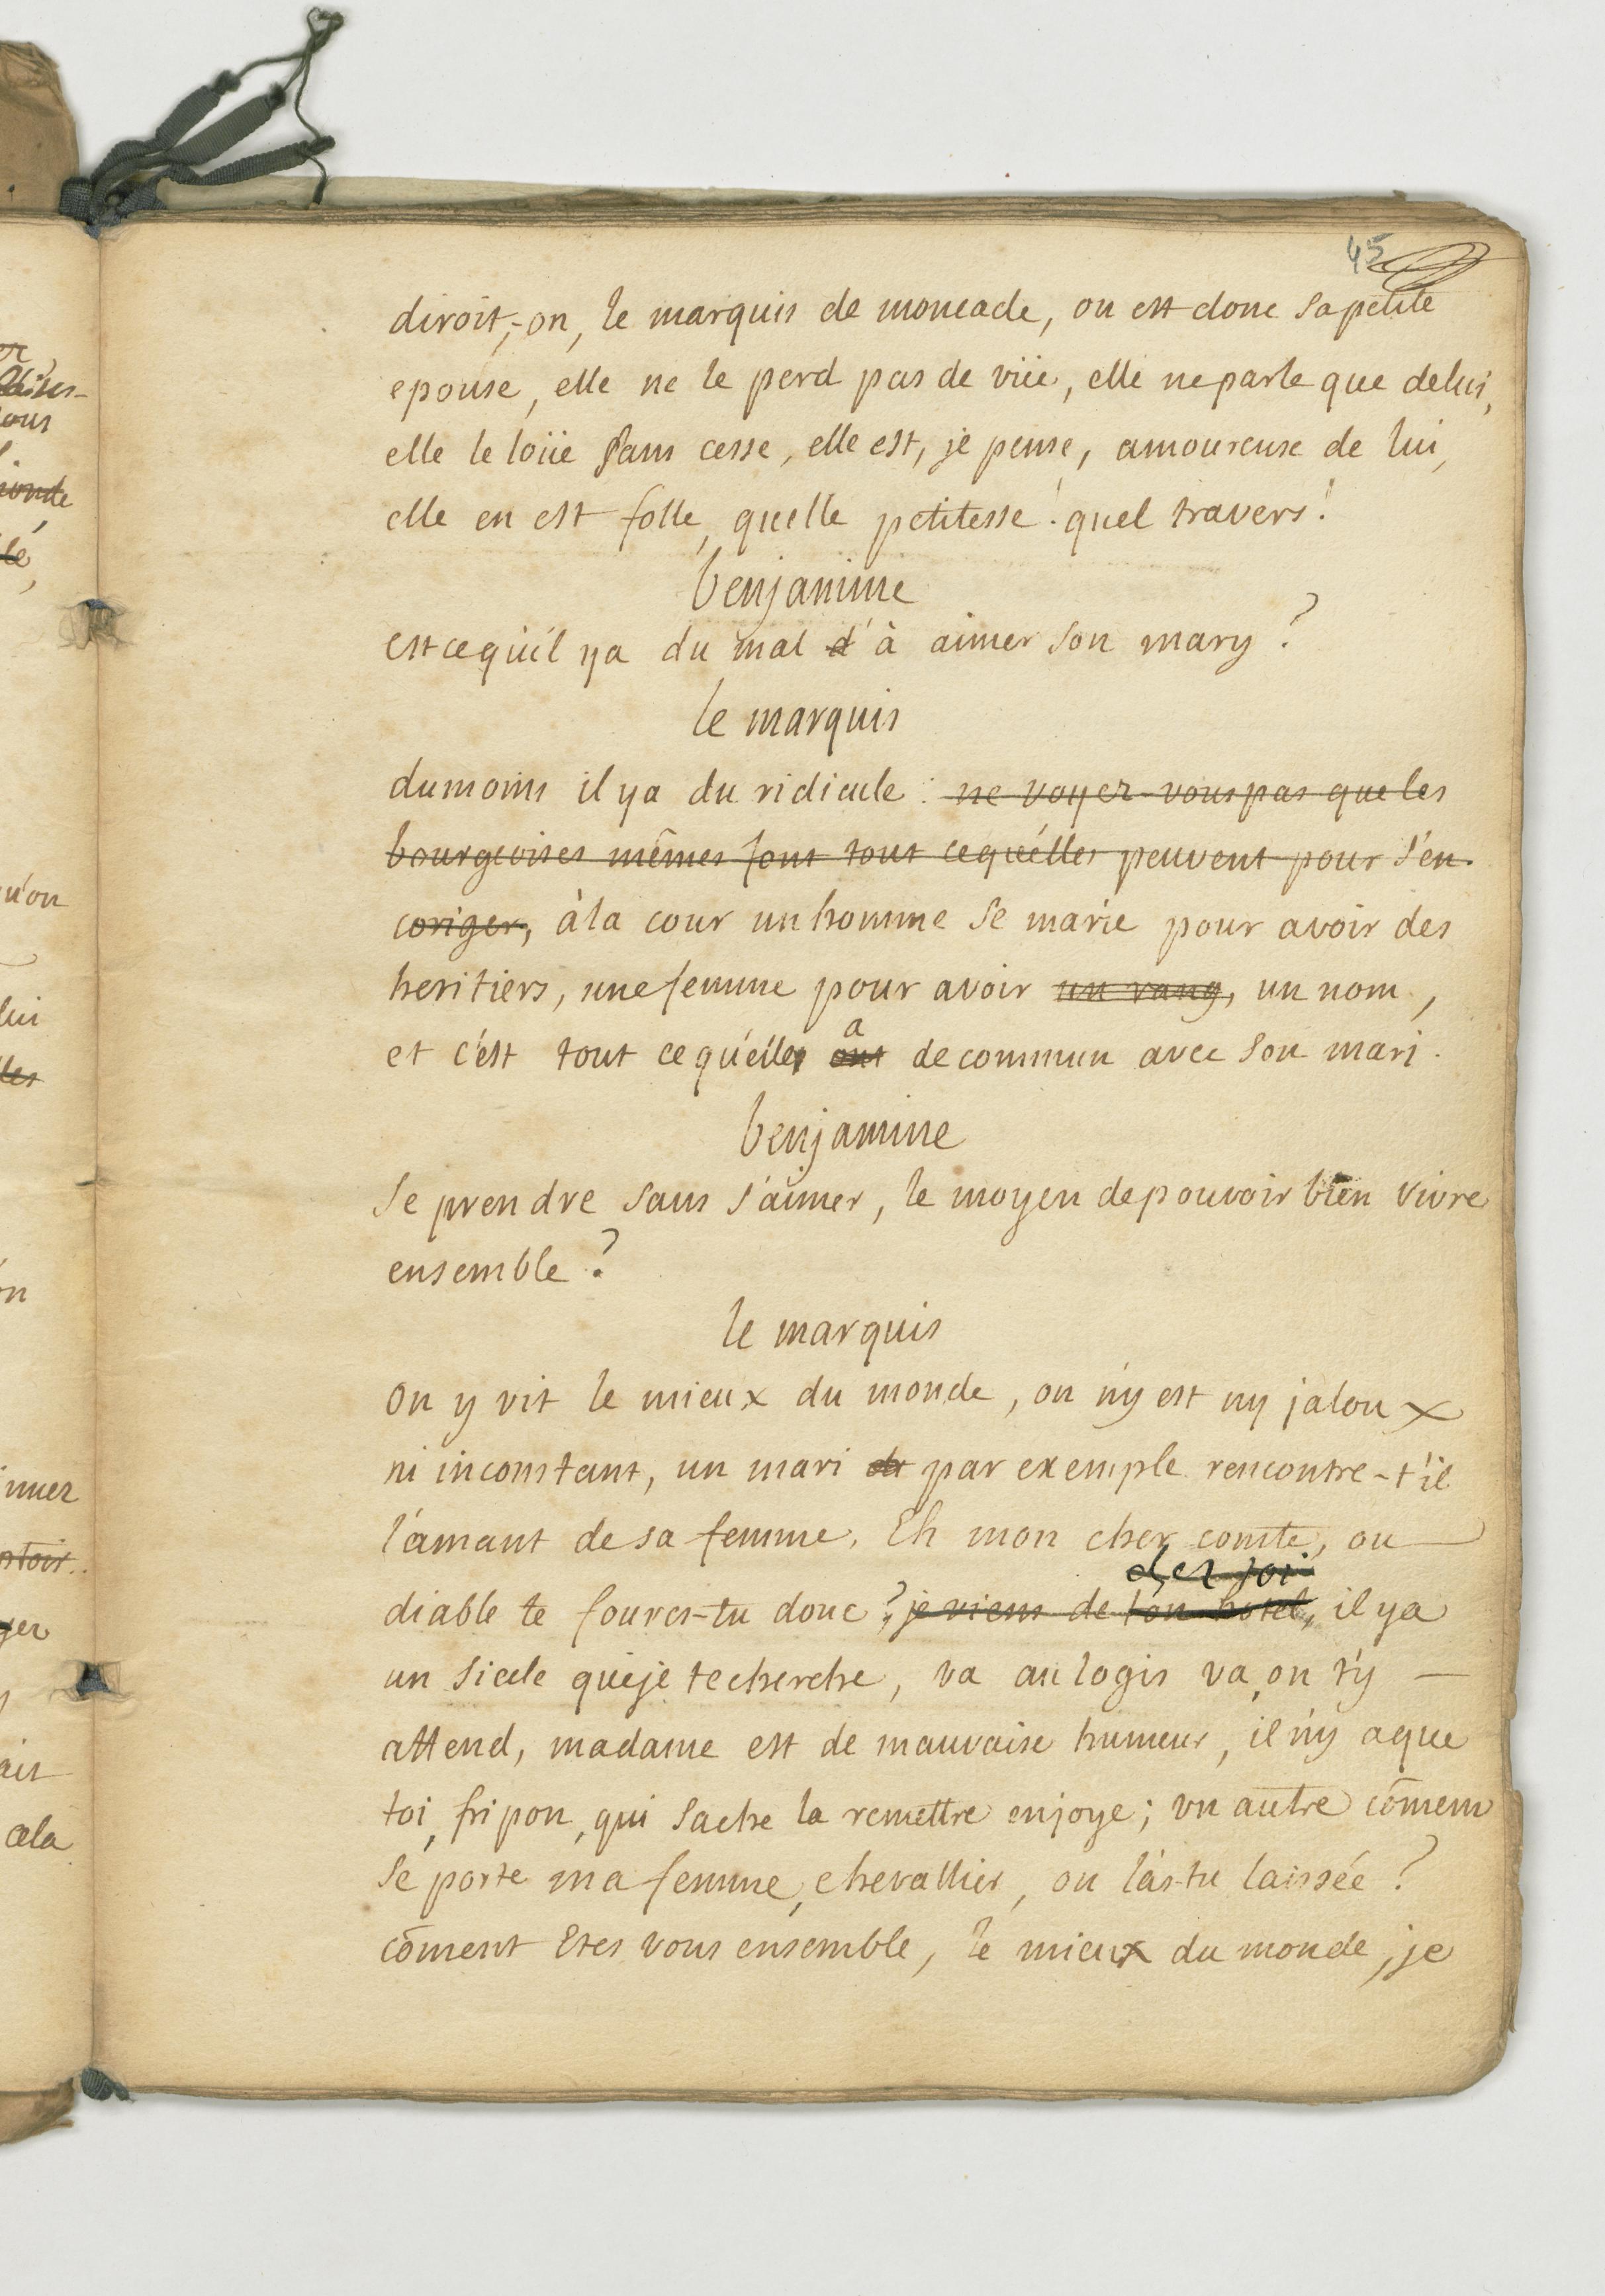 45
diroit,-on, le marquis de moncade, ou est donc sa petite
epouse, elle ne le perd pas de vüe, elle ne parle que de lui,
elle le loüe sans cesse, elle est, je pense, amoureuse de lui,
elle en est folle, quelle petitesse! quel travers!
benjamine
est ce qu'il ya du mal d' à aimer son mary?
le marquis
dumoins il ya du ridicule : ne voyez-vous pas que les
bourgeoises mêmes font tout ce qu'elles peuvent pour s'en
coriger, à la cour un homme se marie pour avoir des
heritiers, une femme pour avoir un rang, un nom,
a
et c'est tout ce qu'elles ont de commun avec son mari.
benjamine
Se prendre sans s'aimer, le moyen de pouvoir bien vivre
ensemble?
le marquis
on y vit le mieux du monde, on n'y est ny jaloux
ni inconstant, un mari par exemple rencontre-t'il
l'amant de sa femme. Eh mon cher comte, ou
chez toi
diable te foures-tu donc? je viens de ton hotel, il ya
un sicele que je te cherche, va au logis va, on t'y —
attend, madame est de mauvaise humeur, il n'y a que
toi, fripon, qui sache la remettre enjoye; un autre cōmem
se porte ma femme, chevallier, ou l'as-tu laissée?
cōment etes vous ensemble, le mieux du monde, je
ous
monde
lé,
u'on
lui
les
on
muer
ptoir.
yer
ait
cela